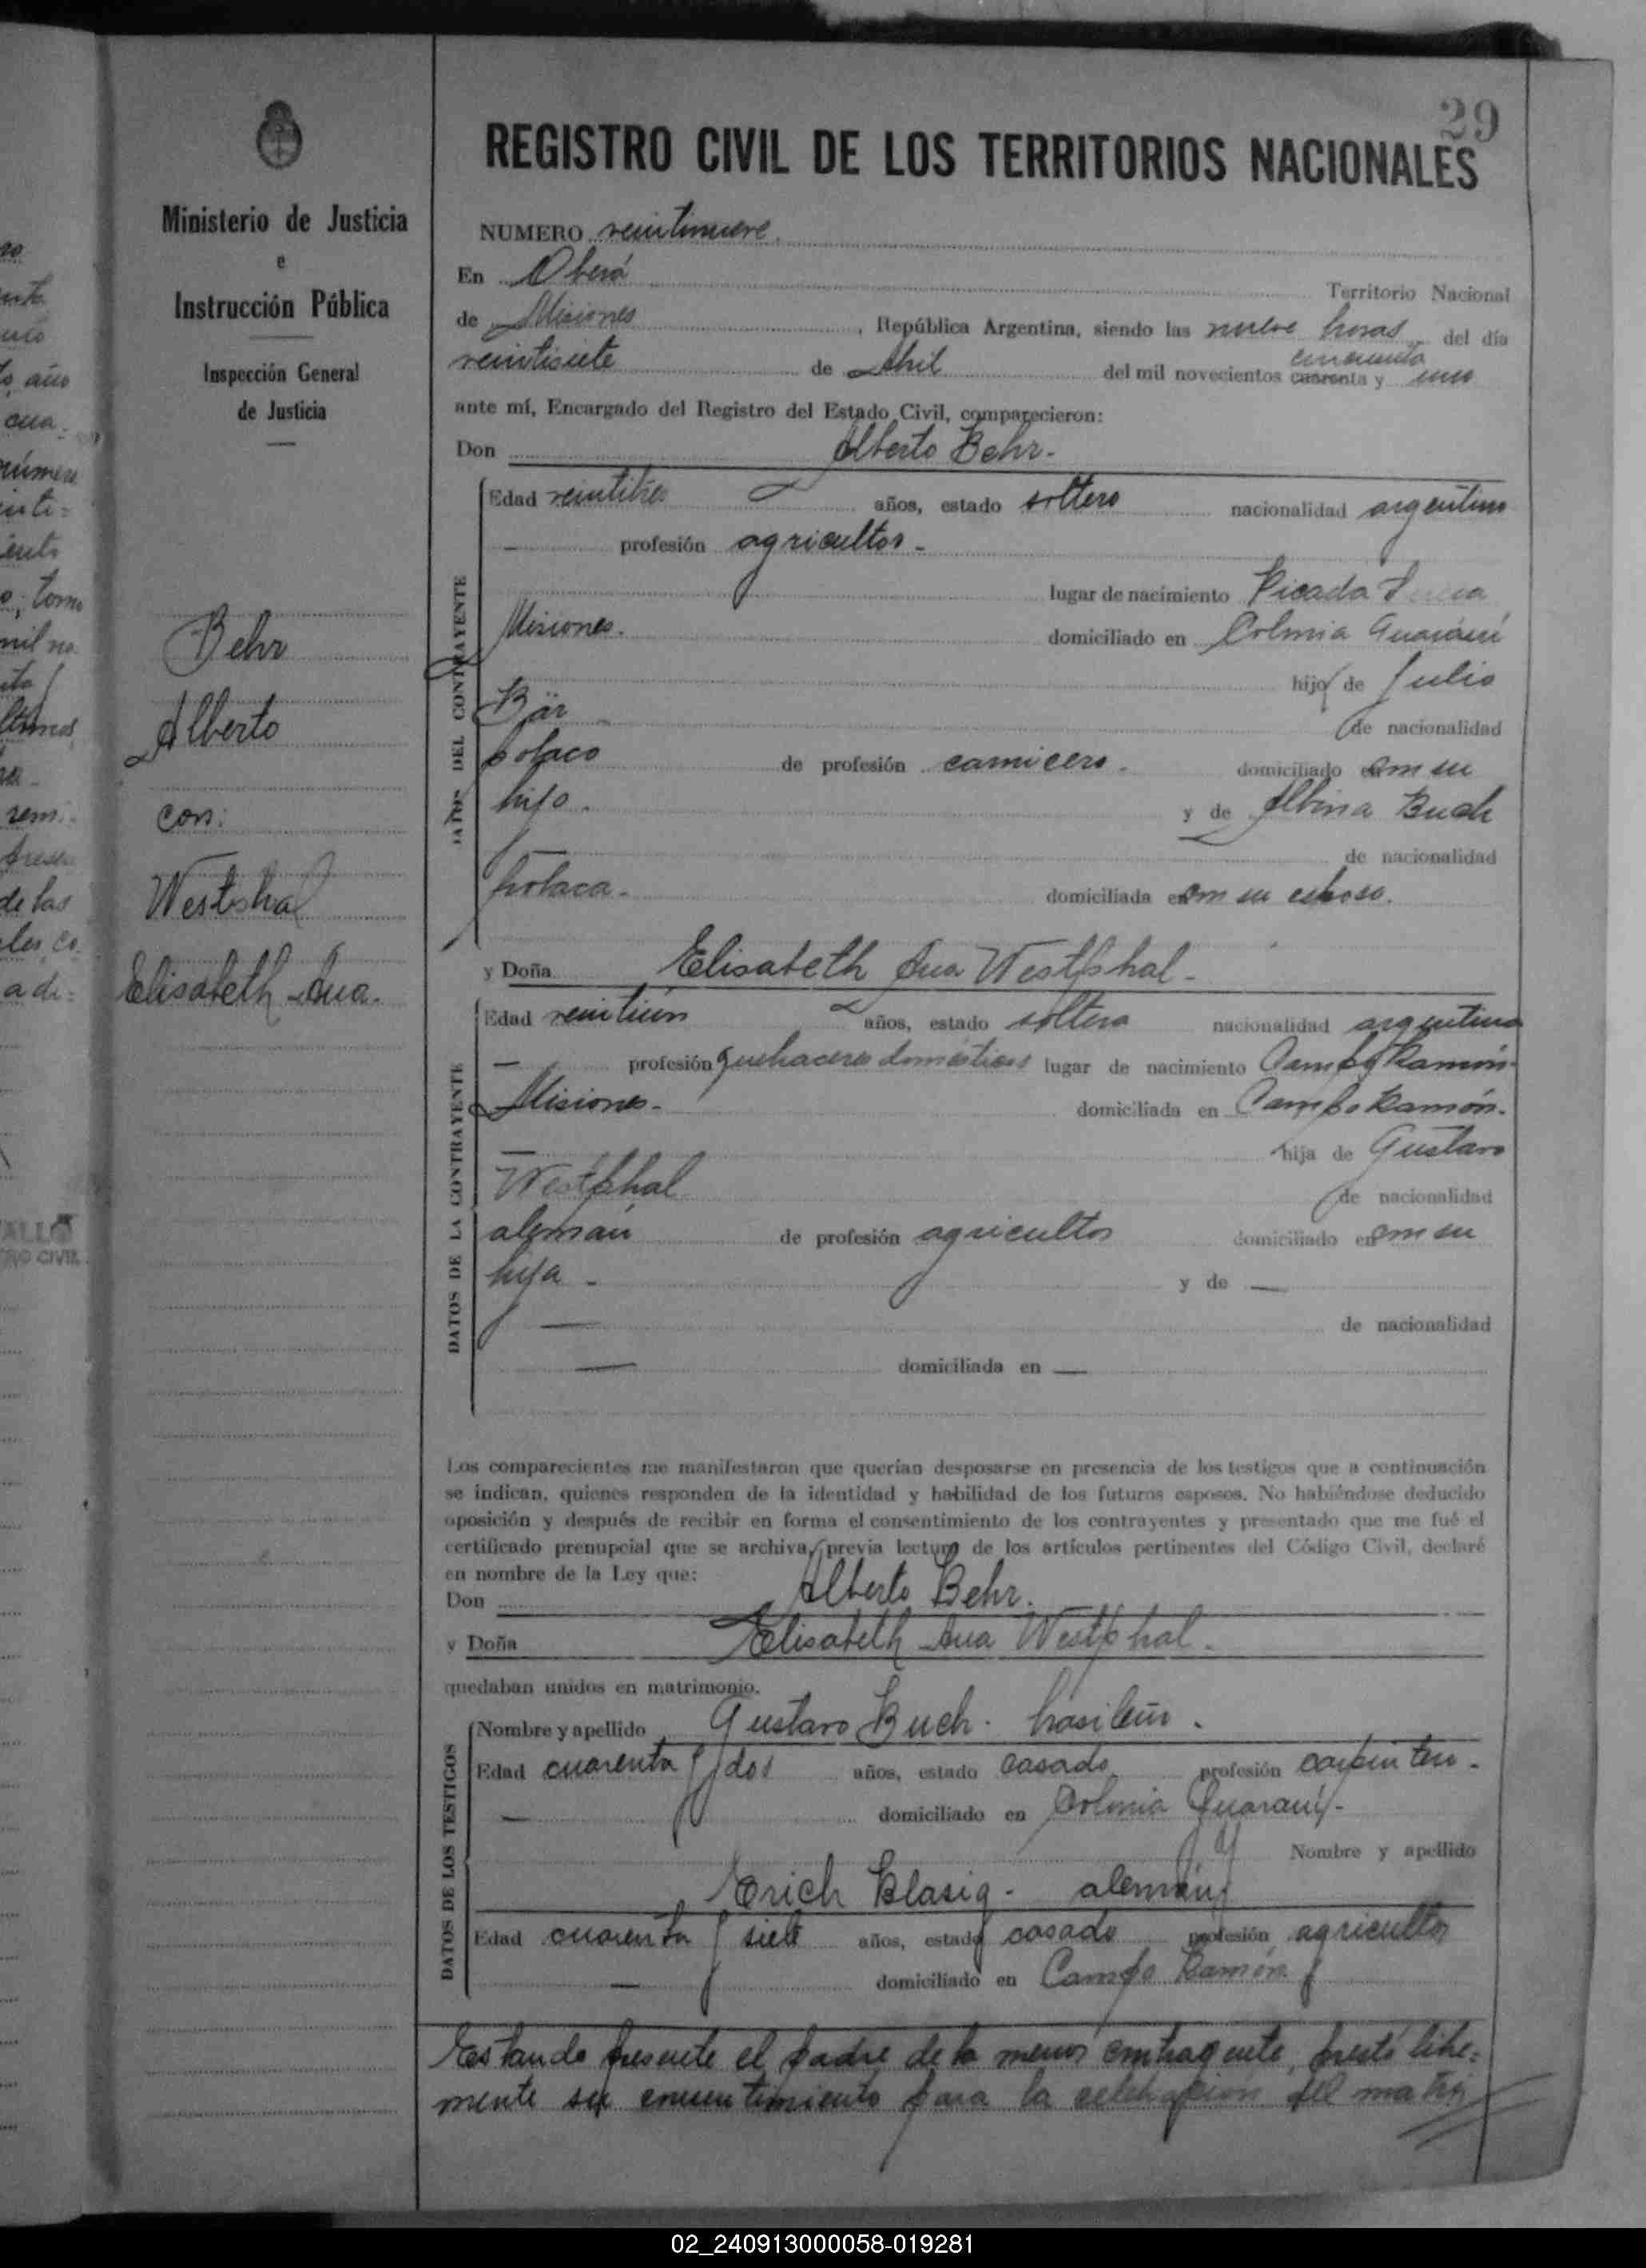 29
REGISTRO CIVIL DE LOS TERRITORIOS NACIONALES
Ministerio de Justicia
e
Instrucción Pública
Inspección General
de Justicia
Behr
Alberto
con:
Westphal
Elisabeth Ana.
NUMERO veintinueve
En Oberá Territorio Nacional
de Misiones, República Argentina, siendo las nueve horas del día
cincuenta
veintisiete de Abril del mil novecientos cuarenta y uno
ante mí, Encargado del Registro del Estado Civil, comparecieron:
Don Alberto Behr.-
DATOS DEL CONTRAYENTE
Edad veintitres años, estado soltero nacionalidad argentino
— profesión agricultor -
lugar de nacimiento Picada
Misiones. domiciliado en Colonia Guaraní
hijo de Julio
Bär - de nacionalidad
polaco de profesión carnicero - domiciliado en con su
hijo. y de Albina Buch
de nacionalidad
polaca.- domiciliada en con su esposo.
y Doña Elisabeth Ana Westphal -
DATOS DE LA CONTRAYENTE
Edad veintiún años, estado soltera nacionalidad argentina
— profesión quehaceres domésticos lugar de nacimiento Campo Ramón-
Misiones.- domiciliada en Campo Ramón.
hija de Gustavo
Westphal de nacionalidad
alemán de profesión agricultor domiciliado en con su
hija - y de —
— de nacionalidad
— domiciliada en —
Los comparecientes me manifestaron que querían desposarse en presencia de los testigos que a continuación
se indican, quienes responden de la identidad y habilidad de los futuros esposos. No habiéndose deducido
oposición y después de recibir en forma el consentimiento de los contrayentes y presentado que me fué el
certificado prenupcial que se archiva, previa lectura de los artículos pertinentes del Código Civil, declaré
en nombre de la Ley que:
Don Alberto Behr.
y Doña Elisabeth Ana Westphal.
quedaban unidos en matrimonio.
DATOS DE LOS TESTIGOS
Nombre y apellido Gustavo Buch - brasileño.
Edad cuarenta y dos años, estado casado profesión carpintero -
— domiciliado en Colonia Guaraní -
y Nombre y apellido
Erich Blasig - alemán
Edad cuarenta y siete años, estado casado profesión agricultor
— domiciliado en Campo Ramón
Estando presente el padre de la menor contrayente, prestó libre=
mente su consentimiento para la celebración del matri
02_240913000058-019281